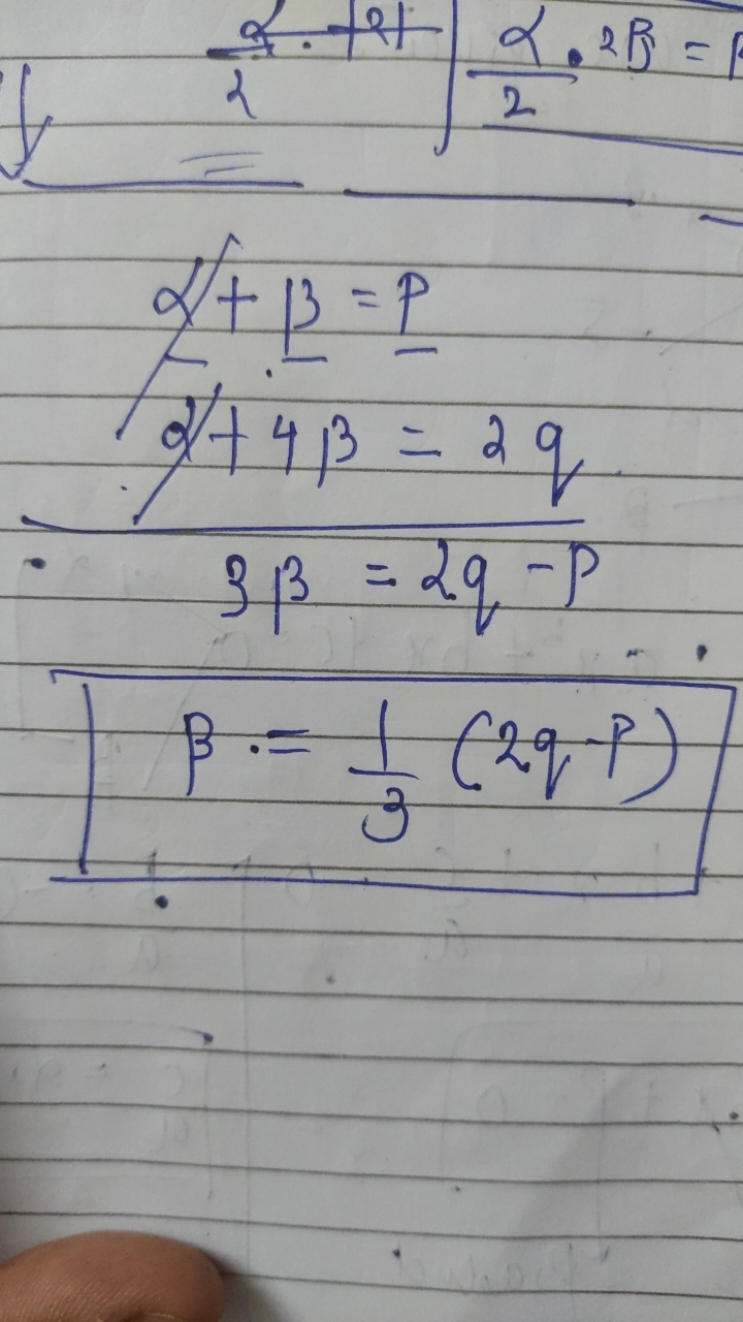 α/2 . 2β =
α + β = P
α + 4β = 2q
3β = 2q - P
β = 1/3 (2q - P)